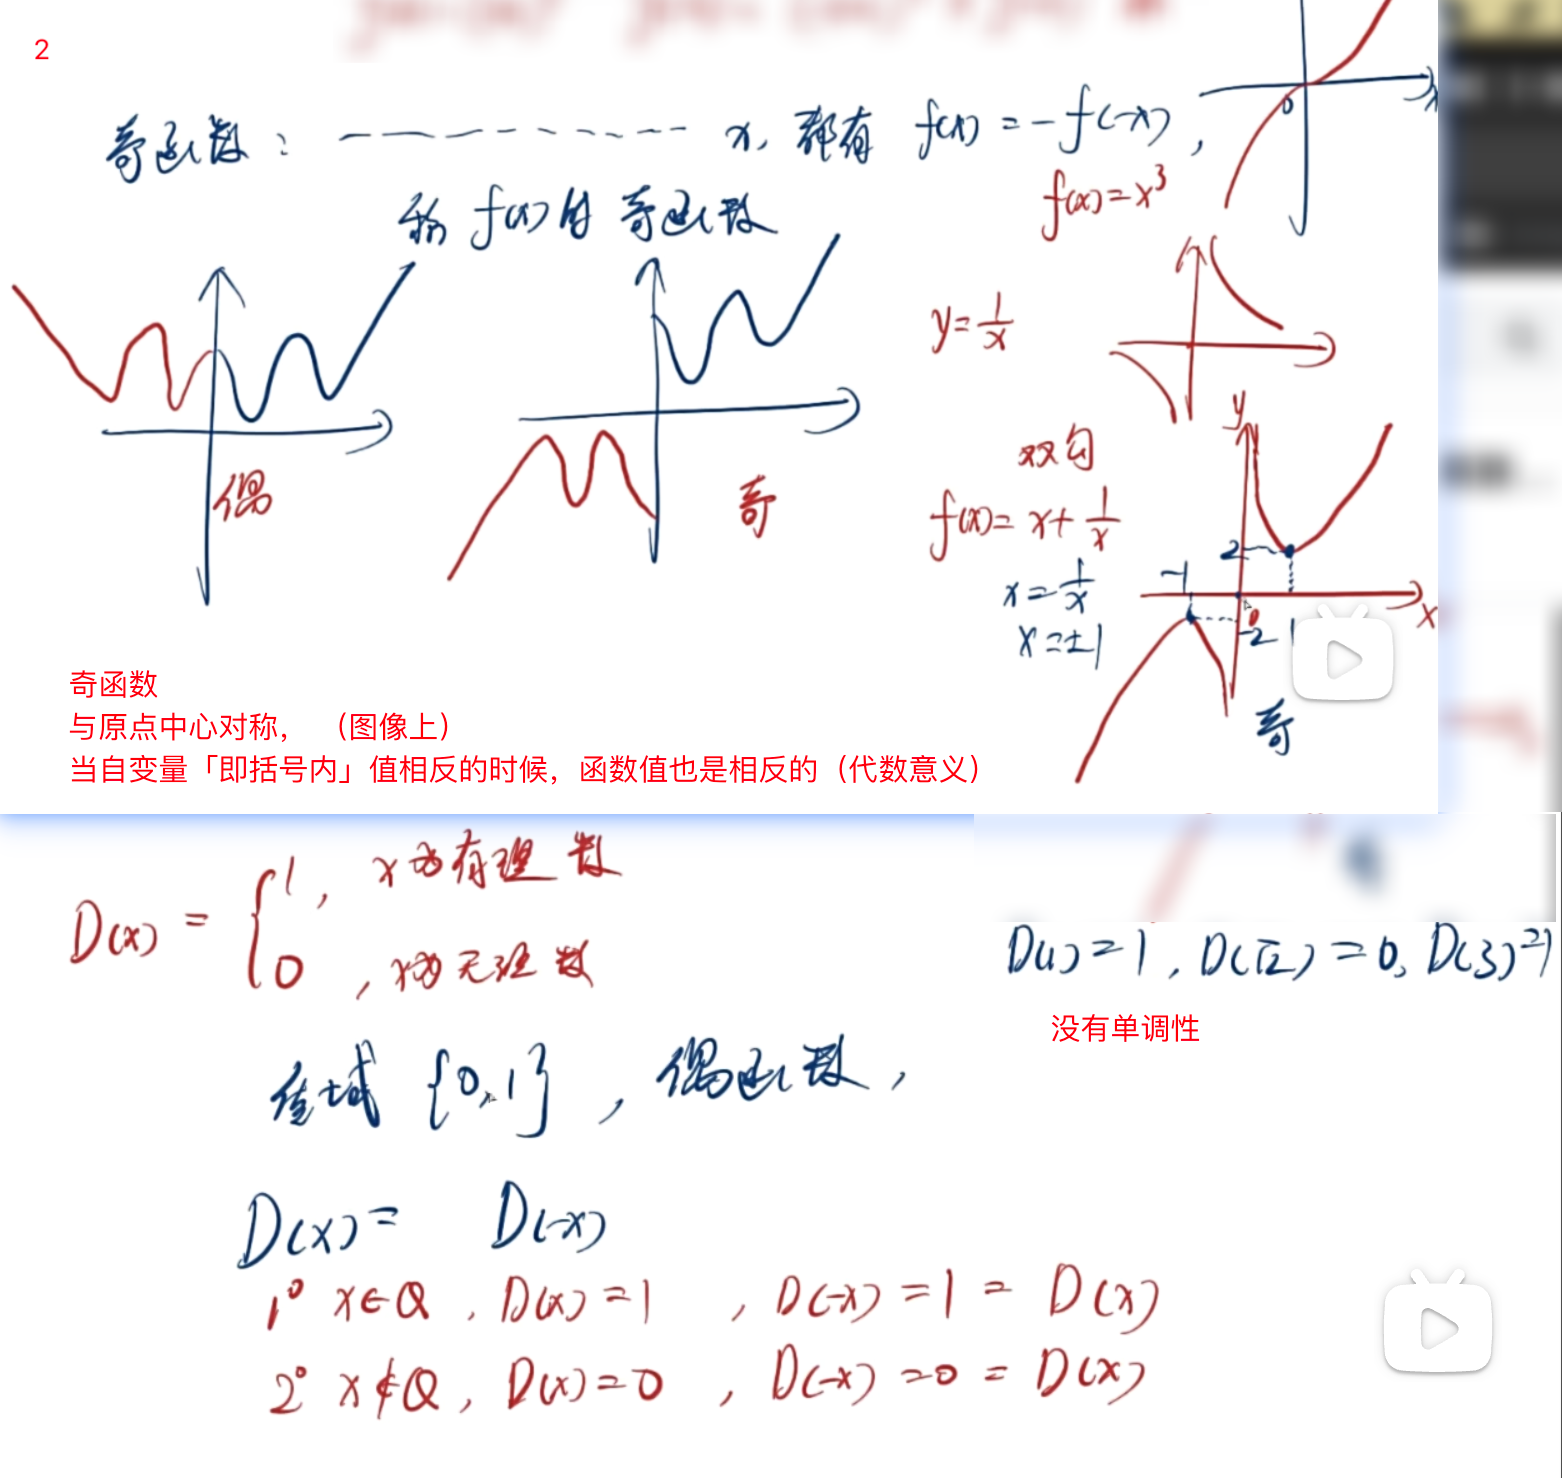 2
奇函数: ------------ x, 都有 f(x) = -f(-x),
称 f(x)为 奇函数
f(x)=x³
x
0
y=1/x
偶
奇
双勾
f(x)= x+ 1/x
x=1/x
x=±1
y
2
-1
0
-2
1
x
奇
奇函数
与原点中心对称， （图像上）
当自变量「即括号内」值相反的时候，函数值也是相反的（代数意义）
D(x) = { 1, x为有理数
0, x为无理数
D(1)=1, D(√2)=0, D(3)=1
没有单调性
值域 {0,1}, 偶函数,
D(x)= D(-x)
1° x∈Q, D(x)=1, D(-x)=1= D(x)
2° x∉Q, D(x)=0, D(-x)=0= D(x)